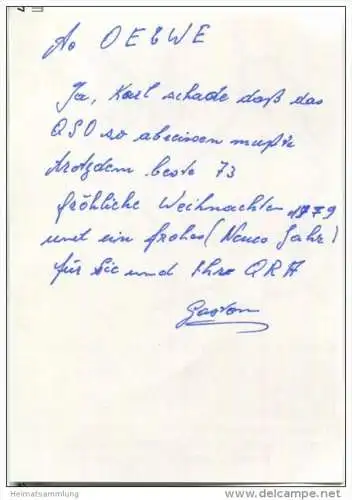 Ao OE8WE
Ja, Karl schade daß das
QSO so abreissen mußte
trotzdem beste 73
fröhliche Weihnachten 1979
und ein frohes (Neues Jahr)
für Sie und Ihre QRA
Gaston
Heimatsammlung
www.delcampe.net